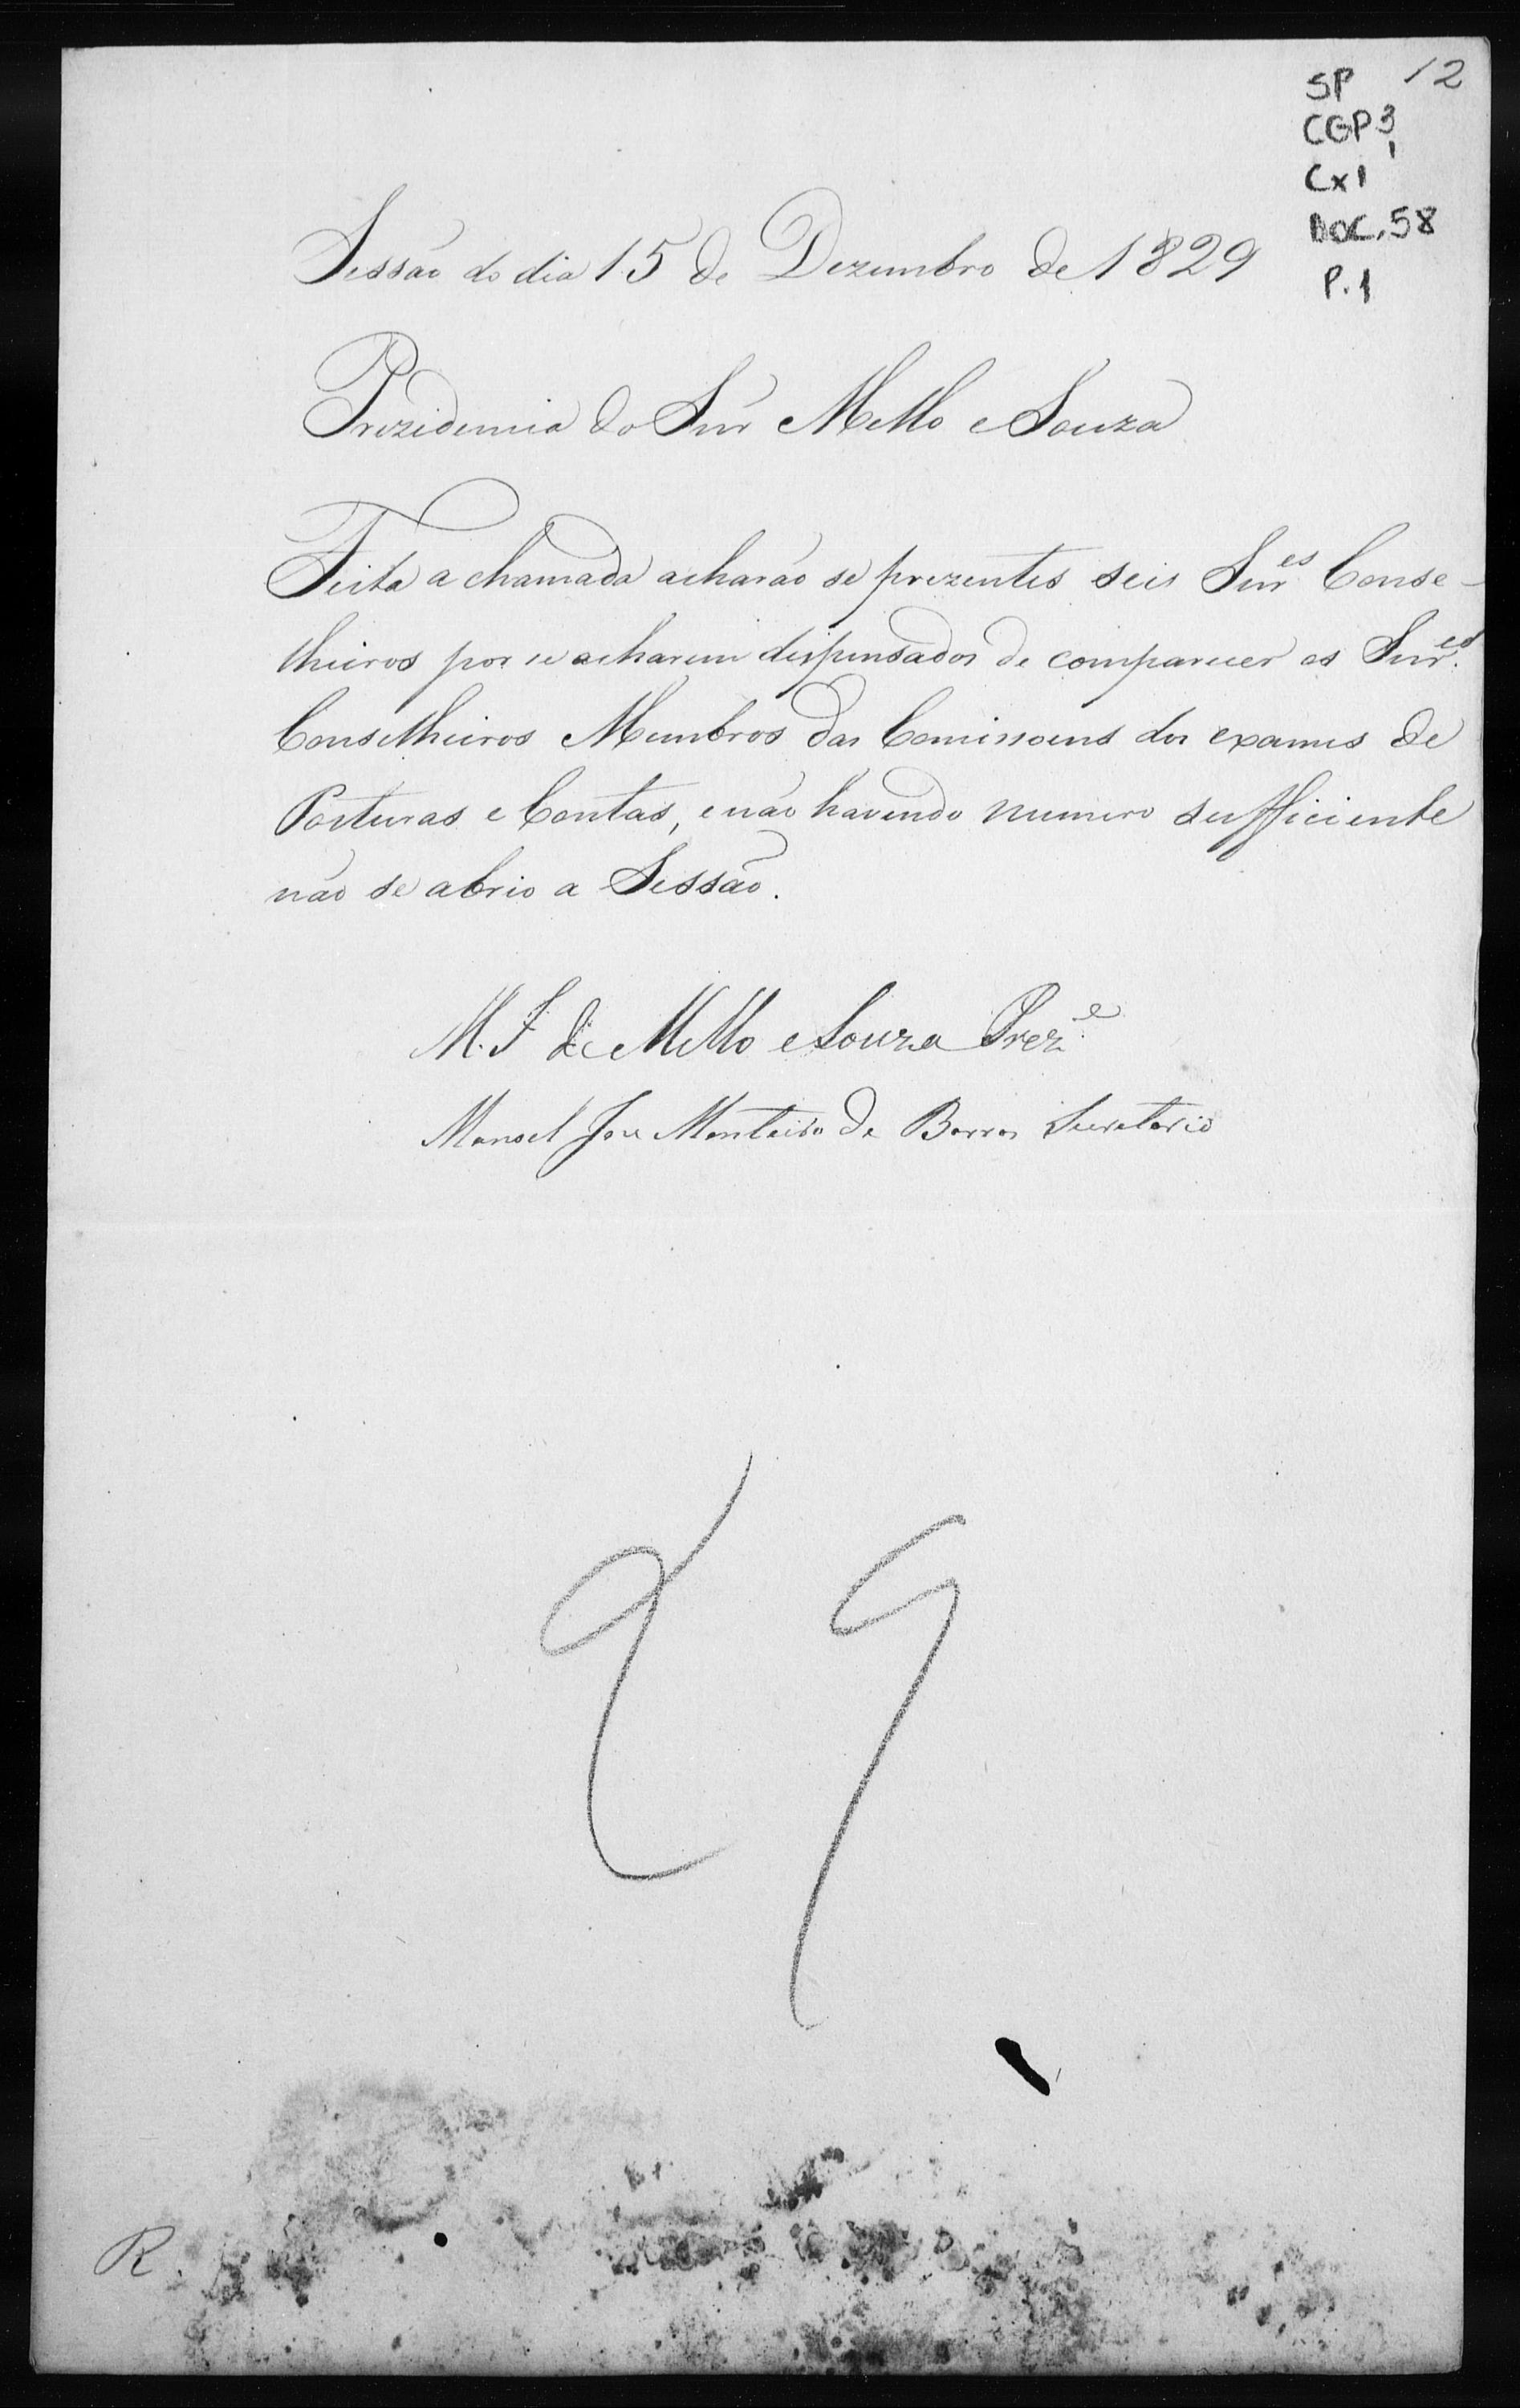 12
SP
CGP 3,1
Cx 1
DOC. 58
P. 1
Sessão do dia 15 de Dezembro de 1829
Prezidencia do Snr̃ Mello e Souza
Feita a chamada acharão se prezentes seis Snr.es Conse-
lheiros por se acharem dispensados de comparecer os Snr.es
Conselheiros Membros das Comissoens dos exames de
Posturas e Contas, e não havendo numero sufficiente
não se abrio a Sessão.
M. I de Mello e Souza Prez.e
Manoel Jose Monteiro de Barros Secretario
R.